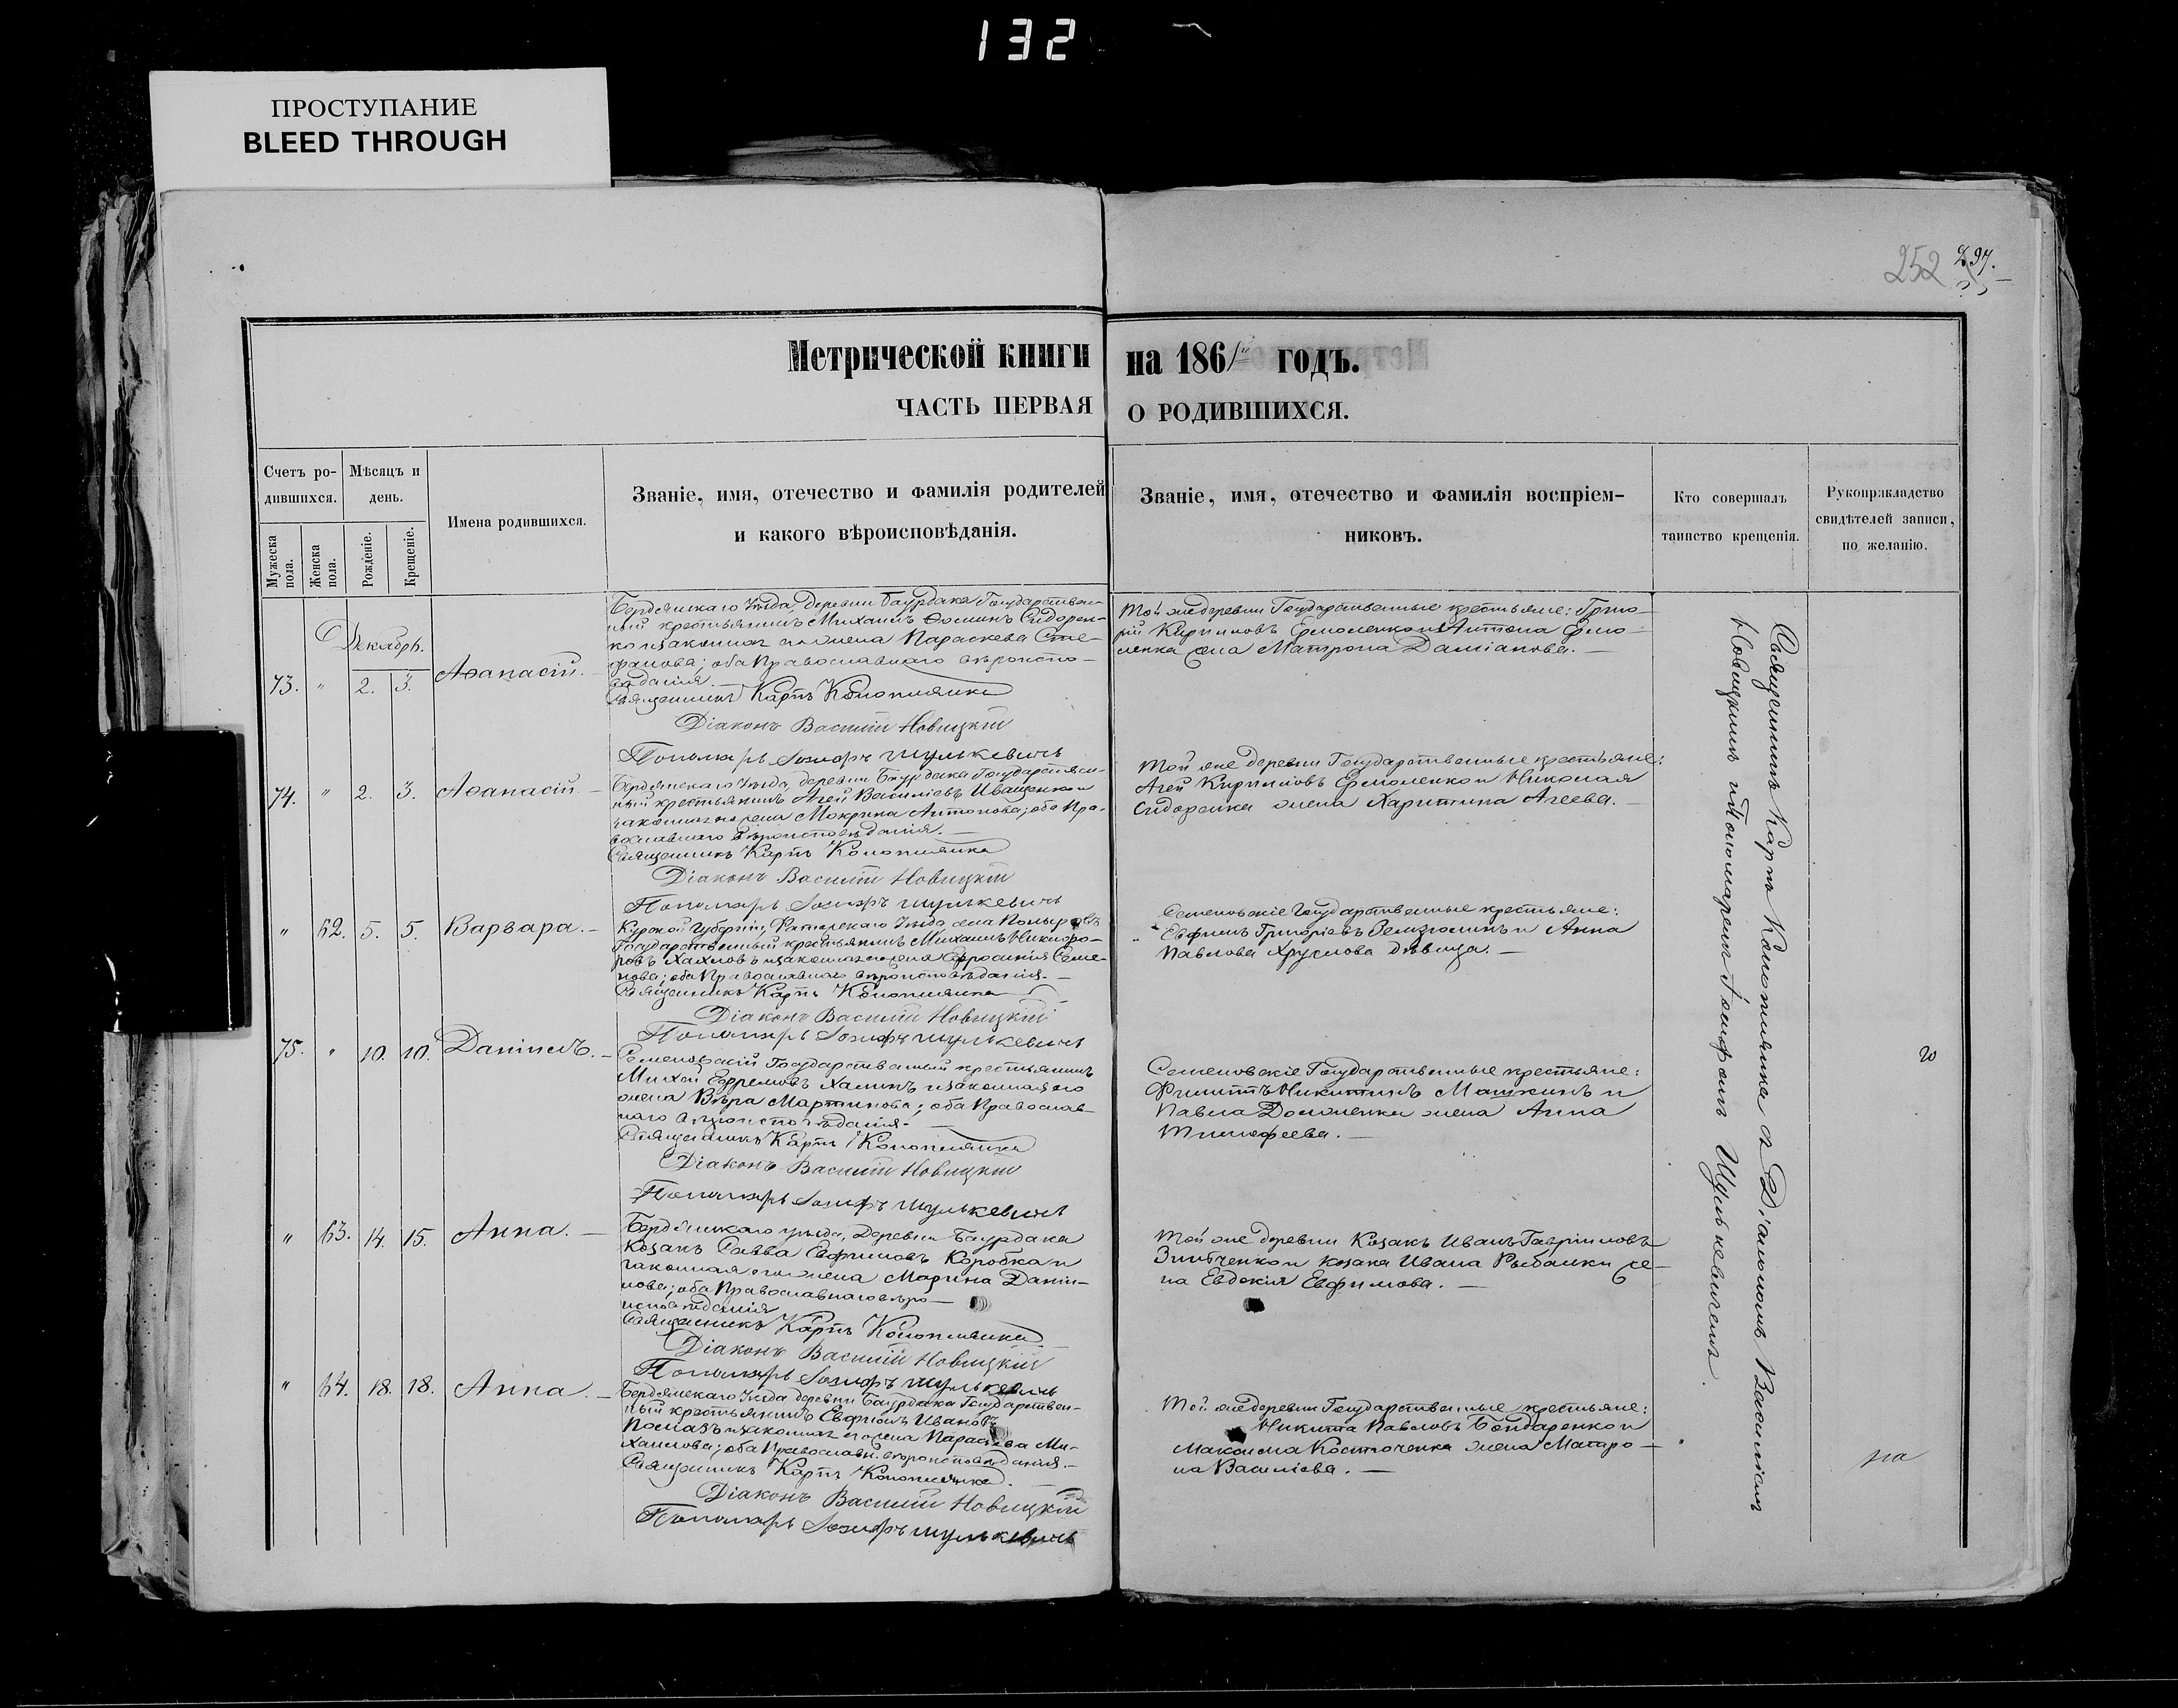 132
ПРОСТУПАНИЕ
BLEED THROUGH
252
297.
Метрической книги на 186 годъ.
ЧАСТЬ ПЕРВАЯ О РОДИВШИХСЯ.
Счетъ ро-
дившихся.
Мѣсяцъ и
день.
Мужеска
пола.
Женска
пола.
Рожденіе.
Крещеніе.
Имена родившихся.
Званіе, имя, отечество и фамилія родителей
и какого вѣроисповѣданія.
Званіе, имя, отечество и фамилія воспріем-
никовъ.
Кто совершалъ
таинство крещенія.
Рукоприкладство
свидѣтелей записи,
по желанію.
Декабрь.
73. " 2. 3. Аѳанасій.
Бердянскаго Уѣзда, Деревни Баурдака Государствен-
ный крестьянинъ Михаилъ Ѳоминъ Сидорен-
ко и законная его жена Параскева Сте-
фанова; оба Православнаго вѣроиспо-
вѣданія.
Священникъ Карпъ Коноплянка
Діаконъ Василій Новицкій
Пономарь Іосифъ Шулькевичъ
Той же деревни Государственные крестьяне: Григо-
рій Кириловъ Ермоленко и Антона Ермо-
ленка жена Матрона Даміанова.
74. " 2. 3. Аѳанасій
Бердянскаго Уѣзда, деревни Баурдака Государствен-
ный крестьянинъ Агей Василіевъ Иващенко и
законная его жена Мокрина Антонова; оба Пра-
вославнаго вѣроисповѣданія.
Священникъ Карпъ Коноплянка
Діаконъ Василій Новицкій
Пономарь Іосифъ Шулькевичъ
Той же деревни Государственные крестьяне:
Агей Кириловъ Ермоленко и Николая
Сидоренка жена Харитина Агеева.
" 62. 5. 5. Варвара.
Курской Губерніи, Уѣзда, села
Государственный крестьянинъ Михаилъ Никифо-
ровъ и законная его жена Ефросинія Семе-
нова; оба Православнаго вѣроисповѣданія.
Священникъ Карпъ Коноплянка
Діаконъ Василій Новицкій
Пономарь Іосифъ Шулькевичъ
Семеновскіе Государственные крестьяне:
Евфимъ Григоріевъ и Анна
Павлова Хруслова дѣвица.
75. " 10. 10. Даніилъ.
Семеновскій Государственный крестьянинъ
Ефремовъ Халинъ и законная его
жена Вѣра Мартинова; оба Православ-
наго вѣроисповѣданія.
Священникъ Карпъ Коноплянка
Діаконъ Василій Новицкій
Пономарь Іосифъ Шулькевичъ
Семеновскіе Государственные крестьяне:
Филиппъ Никитинъ Машкинъ и
Павла жена Анна
Тимофеева.
" 63. 14. 15. Анна.
Бердянскаго уѣзда, Деревни Баурдака
Козакъ Савва Евфимовъ Коробка и
законная его жена Марина Даніи-
лова; оба Православнаго вѣро-
исповѣданія
Священникъ Карпъ Коноплянка
Діаконъ Василій Новицкій
Пономарь Іосифъ Шулькевичъ
Той же деревни Козакъ Иванъ Гавріиловъ
Зинченко и козака Ивана Рыбалки же-
на Евдокія Евфимова.
" 64. 18. 18. Анна.
Бердянскаго Уѣзда деревни Баурдака Государствен-
ный крестьянинъ Евфимъ Ивановъ
и законная его жена Параскева Ми-
хаилова; оба Православн. вѣроисповѣданія.
Священникъ Карпъ Коноплянка.
Діаконъ Василій Новицкій
Пономарь Іосифъ Шулькевичъ
Той же деревни Государственные крестьяне:
Никита Павловъ Бондаренко и
Максима Костюченка жена Матро-
на Василіева.
Священникъ Карпъ Коноплянка съ Діакономъ Василіемъ
Новицкимъ и Пономаремъ Іосифомъ Шулькевичемъ.
го
на